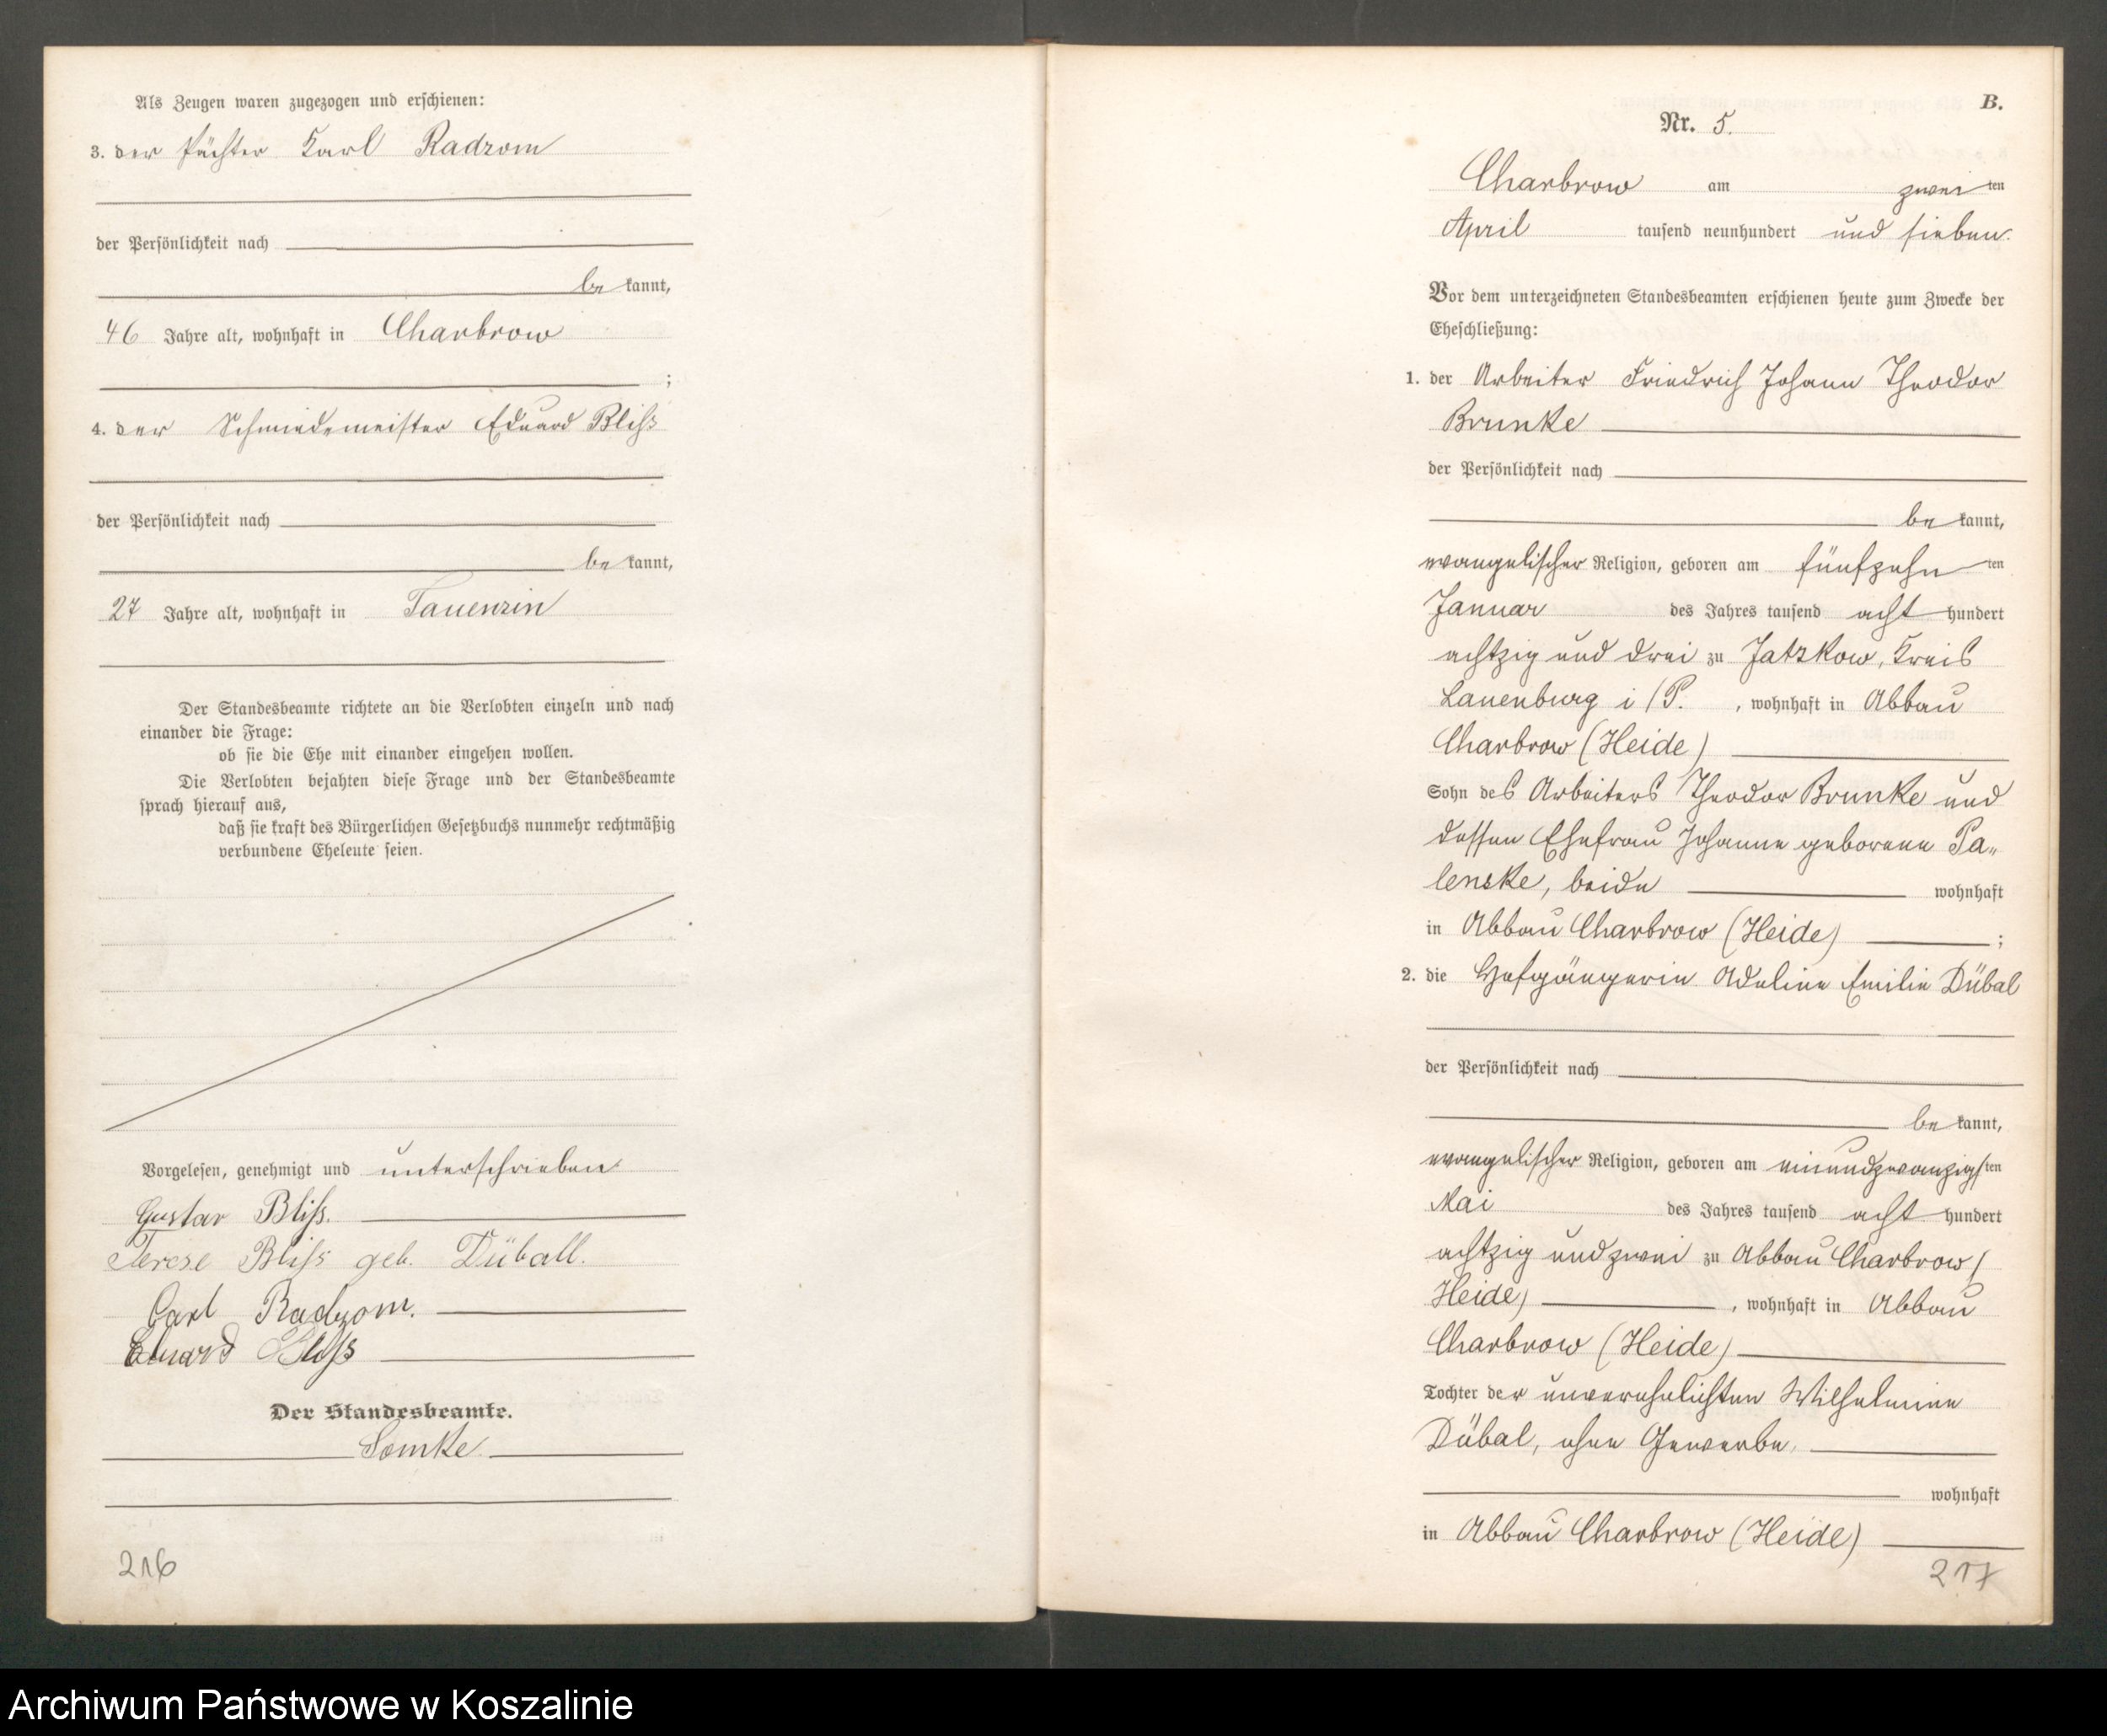 Als Zeugen waren zugezogen und erschienen:
3. der Pächter Karl Radzom
der Persönlichkeit nach
be kannt,
46 Jahre alt, wohnhaft in Charbrow
;
4. der Schmiedemeister Eduard Bliß
der Persönlichkeit nach
be kannt,
27 Jahre alt, wohnhaft in Tauenzin
Der Standesbeamte richtete an die Verlobten einzeln und nach
einander die Frage:
ob sie die Ehe mit einander eingehen wollen.
Die Verlobten bejahten diese Frage und der Standesbeamte
sprach hierauf aus,
daß sie kraft des Bürgerlichen Gesetzbuchs nunmehr rechtmäßig
verbundene Eheleute seien.
Vorgelesen, genehmigt und unterschrieben
Gustav Bliß.
Terese Bliß geb. Düball.
Carl Radzom.
Eduard Bliß
Der Standesbeamte.
Somke
216
B.
Nr. 5.
Charbrow am zwei ten
April tausend neunhundert und sieben.
Vor dem unterzeichneten Standesbeamten erschienen heute zum Zwecke der
Eheschließung:
1. der Arbeiter Friedrich Johann Theodor
Brunke
der Persönlichkeit nach
be kannt,
evangelischer Religion, geboren am fünfzehn ten
Januar des Jahres tausend acht hundert
achtzig und drei zu Jatzkow, Kreis
Lauenburg i/P. , wohnhaft in Abbau
Charbrow (Heide)
Sohn des Arbeiters Theodor Brunke und
dessen Ehefrau Johanne geborene Pa„
lenske, beide wohnhaft
in Abbau Charbrow (Heide) ;
2. die Hofgängerin Adeline Emilie Dübal
der Persönlichkeit nach
be kannt,
evangelischer Religion, geboren am einundzwanzigsten
Mai des Jahres tausend acht hundert
achtzig und zwei zu Abbau Charbrow (
Heide) , wohnhaft in Abbau
Charbrow (Heide)
Tochter der unverehelichten Wilhelmine
Dübal, ohne Gewerbe,
wohnhaft
in Abbau Charbrow (Heide)
217
Archiwum Państwowe w Koszalinie